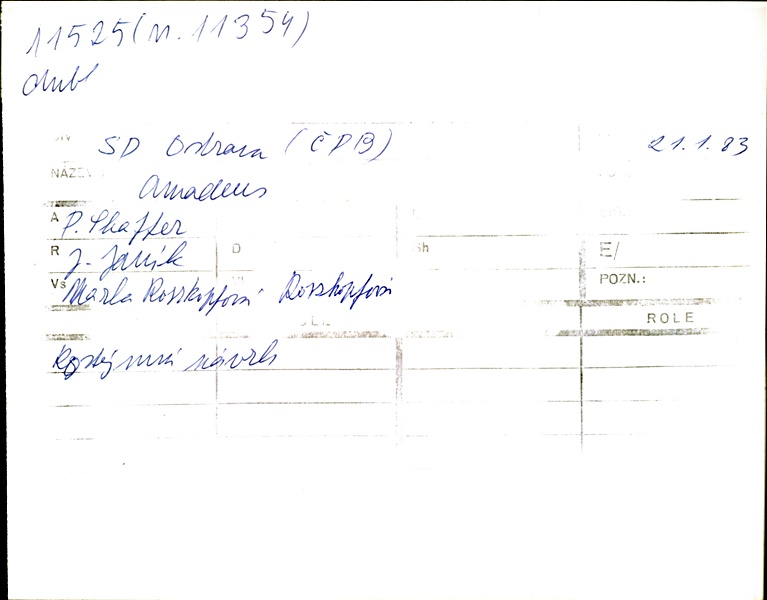 11525 (n. 11354)
dubl
SD Ostrava (ČDB) 21.1.83
NÁZEV Amadeus
A P. Shaffer
R J. Janík D Sh E/
Vs Marta Roszkopfová Roszkopfová POZN.:
ROLE
Kostýmní návrh